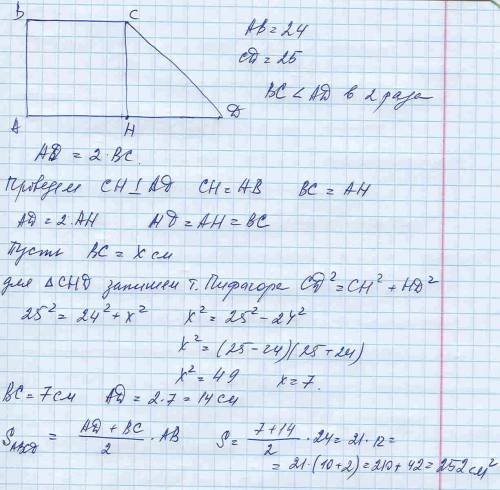 B C
A H D
AB = 24
CD = 25
BC < AD в 2 раза
AD = 2·BC.
Проведем CH ⊥ AD CH = AB BC = AH
AD = 2·AH HD = AH = BC
Пусть BC = x см
для ΔCHD запишем т. Пифагора CD² = CH² + HD²
25² = 24² + x² x² = 25² - 24²
x² = (25-24)(25+24)
x² = 49 x = 7.
BC = 7 см AD = 2·7 = 14 см
S_ABCD = (AD + BC)/2 · AB S = (7+14)/2 · 24 = 21·12 =
= 21·(10+2) = 210 + 42 = 252 см²